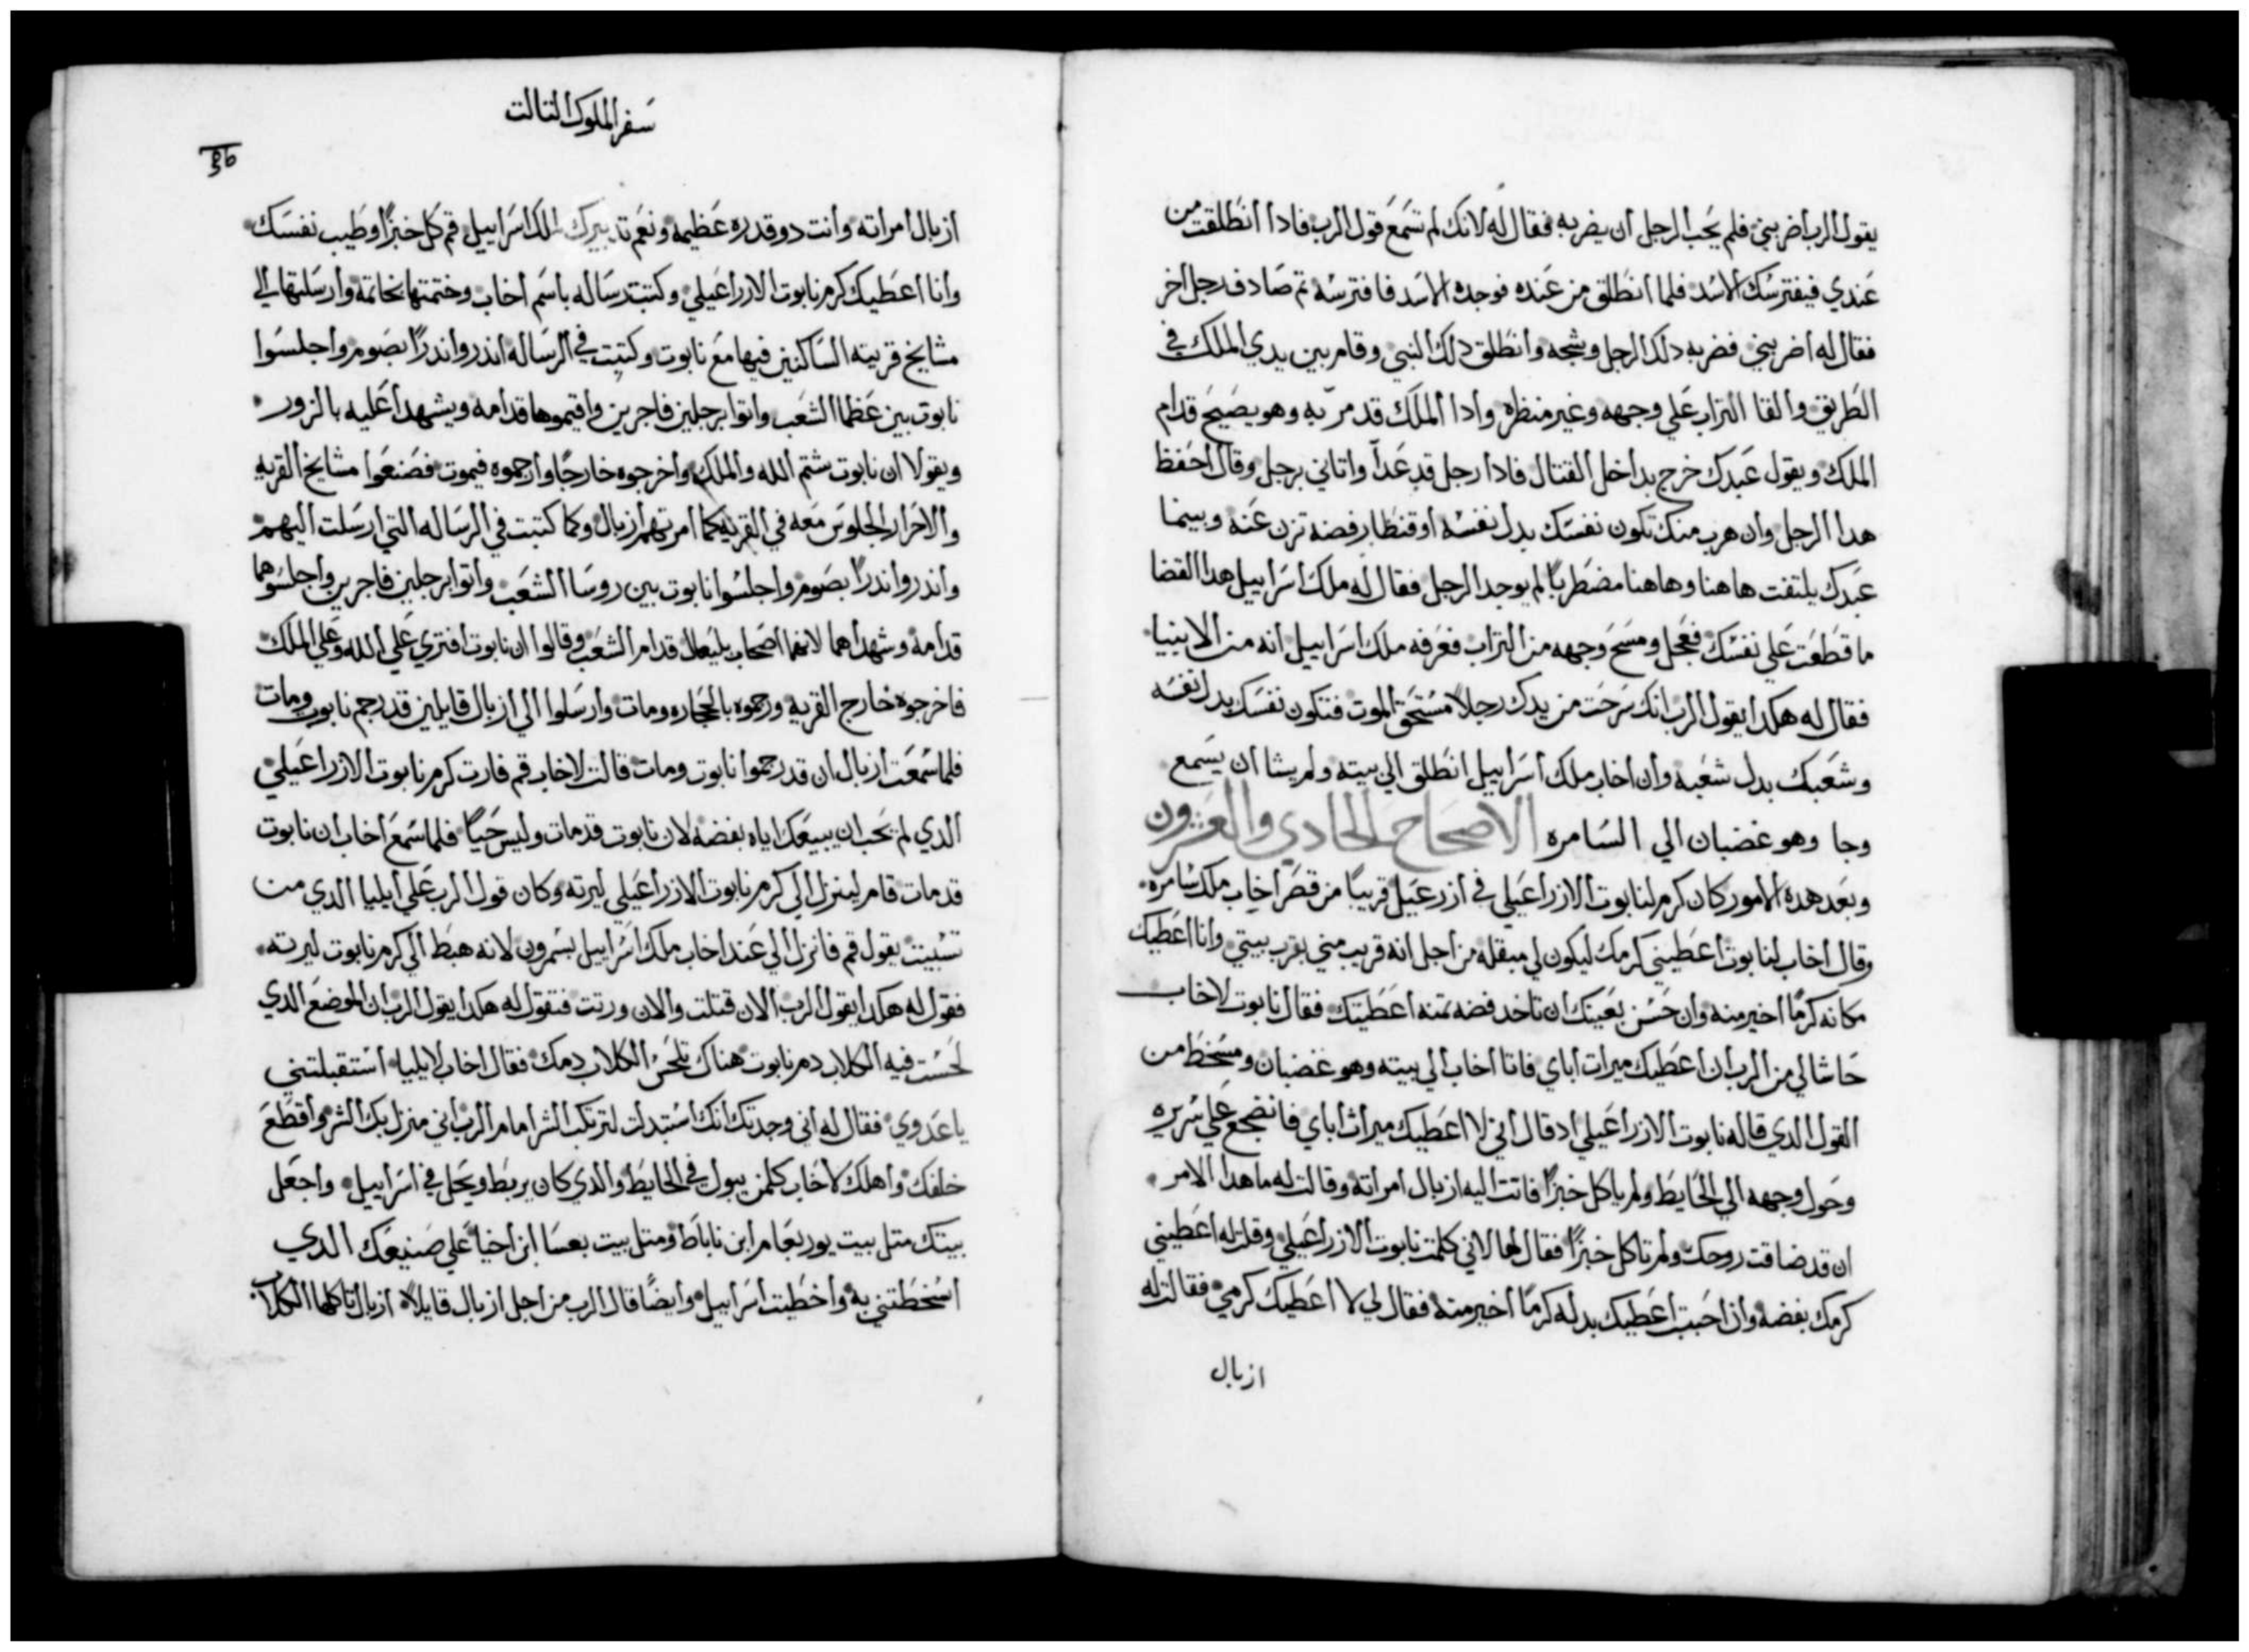 يقول الرب اضربني فلم يحب الرجل ان يضربه فقال له لانك لم تسمع قول الرب فادا انطلقت من
عندي فيفترسك الاسد فلما انطلق من عنده فوجده الاسد فافترسه تم صادف رجل اخر
فقال له اضربني فضربه دلك الرجل وشجه وانطلق دلك النبي وقام بين يدي الملك في
الطريق والقا التراب علي وجهه وغير منظره وادا الملك قد مر به وهو يصيح قدام
الملك ويقول عبدك خرج بداخل القتال فادا رجل قد عدا واتاني برجل وقال احفظ
هدا الرجل وان هرب منك تكون نفسك بدل نفسه او قنطار فضه تزن عنه وبينما
عبدك يلتفت هاهنا وهاهنا مضطربا لم يوجد الرجل فقال له ملك اسراييل هدا القضا
ما قطعت علي نفسك فعجل ومسح وجهه من التراب فعرفه ملك اسراييل انه من الابنيا
فقال له هكدا يقول الرب انك سرحت من يدك رجلا مستحق الموت فتكون نفسك بدل نفسه
وشعبك بدل شعبه وان اخاب ملك اسراييل انطلق الي بيته ولم يشا ان يسمع
وجا وهو غضبان الي السامره الاصحاح الحادي والعشرون
وبعد هده الامور كان كرم لنابوت الازراعيلي في ازرعيل قريبا من قصر اخاب ملك سامره
وقال اخاب لنابوت اعطيني كرمك ليكون لي مبقله من اجل انه قريب مني بقرب بيتي وانا اعطيك
مكانه كرما اخير منه وان حسن بعينك ان تاخد فضه تمنه اعطيتك فقال نابوت لاخاب
حاشا لي من الرب ان اعطيك ميرات اباي فاتا اخاب الي بيته وهو غضبان ومسخط من
القول الدي قاله نابوت الازراعيلي اد قال اني لا اعطيك ميراث اباي فانضجع علي سريره
وحول وجهه الي الحايط ولم ياكل خبزا فاتت اليه ازبال امراته وقالت له ما هدا الامر
ان قد ضاقت روحك ولم تاكل خبزا فقال لها لاني كلمت نابوت الازراعيلي وقلت له اعطيني
كرمك بفضه وان احببت اعطيك بدله كرما اخير منه فقال لي لا اعطيك كرمي فقالت له
ازبال
سفر الملوك التالت
96
ازبال امراته وانت دو قدره عظيمه ونعم تدبيرك لملك اسراييل قم كل خبزا وطيب نفسك
وانا اعطيك كرم نابوت الازراعيلي وكتبت رساله باسم اخاب وختمتها بخاتمه وارسلتها الي
مشايخ قريته الساكنين فيها مع نابوت وكتبت في الرساله اندروا ندرا بصوم واجلسوا
نابوت بين عظما الشعب واتوا برجلين فاجرين واقيموها قدامه ويشهدا عليه بالزور
ويقولا ان نابوت شتم الله والملك واخرجوه خارجا وارجموه فيموت فصنعوا مشايخ القريه
والاحرار الجلوس معه في القريه كما امرتهم ازبال وكما كتبت في الرساله التي ارسلت اليهم
واندروا ندرا بصوم واجلسوا نابوت بين روسا الشعب واتوا برجلين فاجرين واجلسوهما
قدامه وشهدا هما لانهما اصحاب بليعال قدام الشعب وقالوا ان نابوت افتري علي الله وعلي الملك
فاخرجوه خارج القريه ورجموه بالحجاره ومات وارسلوا الي ازبال قايلين قد رجم نابوت ومات
فلما سمعت ازبال ان قد رجموا نابوت ومات قالت لاخاب قم فارت كرم نابوت الازراعيلي
الدي لم يحب ان يبيعك اياه بفضه لان نابوت قد مات وليس حيا فلما سمع اخاب ان نابوت
قد مات قام لينزل الي كرم نابوت الازراعيلي ليرته وكان قول الرب علي ايليا الدي من
تسبيت يقول قم فانزل الي عند اخاب ملك اسراييل بسمرون لانه هبط الي كرم نابوت ليرته
فقول له هكدا يقول الرب الان قتلت والان ورتت فتقول له هكدا يقول الرب ان الموضع الدي
لحست فيه الكلاب دم نابوت هناك تلحس الكلاب دمك فقال اخاب لايليا استقبلتني
يا عدوي فقال له اني وجدتك انك استبدلت لترتكب الشر امام الرب اني منزل بك الشر واقطع
خلفك واهلك لاخاب كلمن يبول في الحايط والدي كان يربط ويحل في اسراييل واجعل
بيتك متل بيت يوربعام ابن ناباط ومتل بيت بعسا ابن اخيا علي صنيعك الدي
اسخطتني به واخطيت اسراييل وايضا قال الرب من اجل ازبال قايلا ازبال تاكلها الكلاب